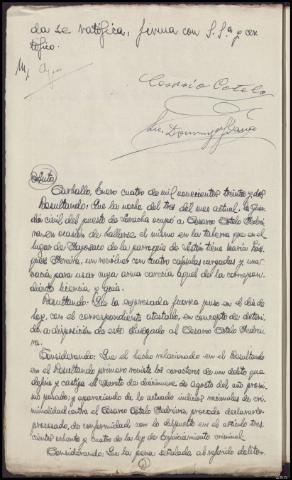 da se ratifica, firma con S.Sª y cer
tifico.
Cesareo Cotelo
Auto
Carballo, Enero cuatro de mil novecientos treinta y dos
Resultando: Que la noche del tres del mes actual, la guar
dia civil del puesto de Laracha ocupó a Cesareo Cotelo
en ocasion de hallarse el mismo en la taberna que en el
lugar de de la parroquia de tiene Maria
un revolver con cuatro capsulas cargadas y una
para usar cuya arma carecia aquel de la correspon
diente licencia y guia.
Resultando: Que la expresada fuerza puso en el dia de
hoy, con el correspondiente atestado, en concepto de deteni
do a disposicion de este Juzgado al Cesareo Cotelo
Considerando: Que el hecho relacionado en el Resultando
en el Resultando primero reviste los caracteres de un delito que
define y castiga el Decreto de de agosto del año proxi
mo pasado; y apareciendo de lo actuado indicios racionales de cri
minalidad contra el Cesareo Cotelo procede declararle
procesado, de conformidad con lo dispuesto en el articulo tres
cientos ochenta y cuatro de la ley de Enjuiciamiento criminal.
Considerando: Que la pena señalada al referido delito